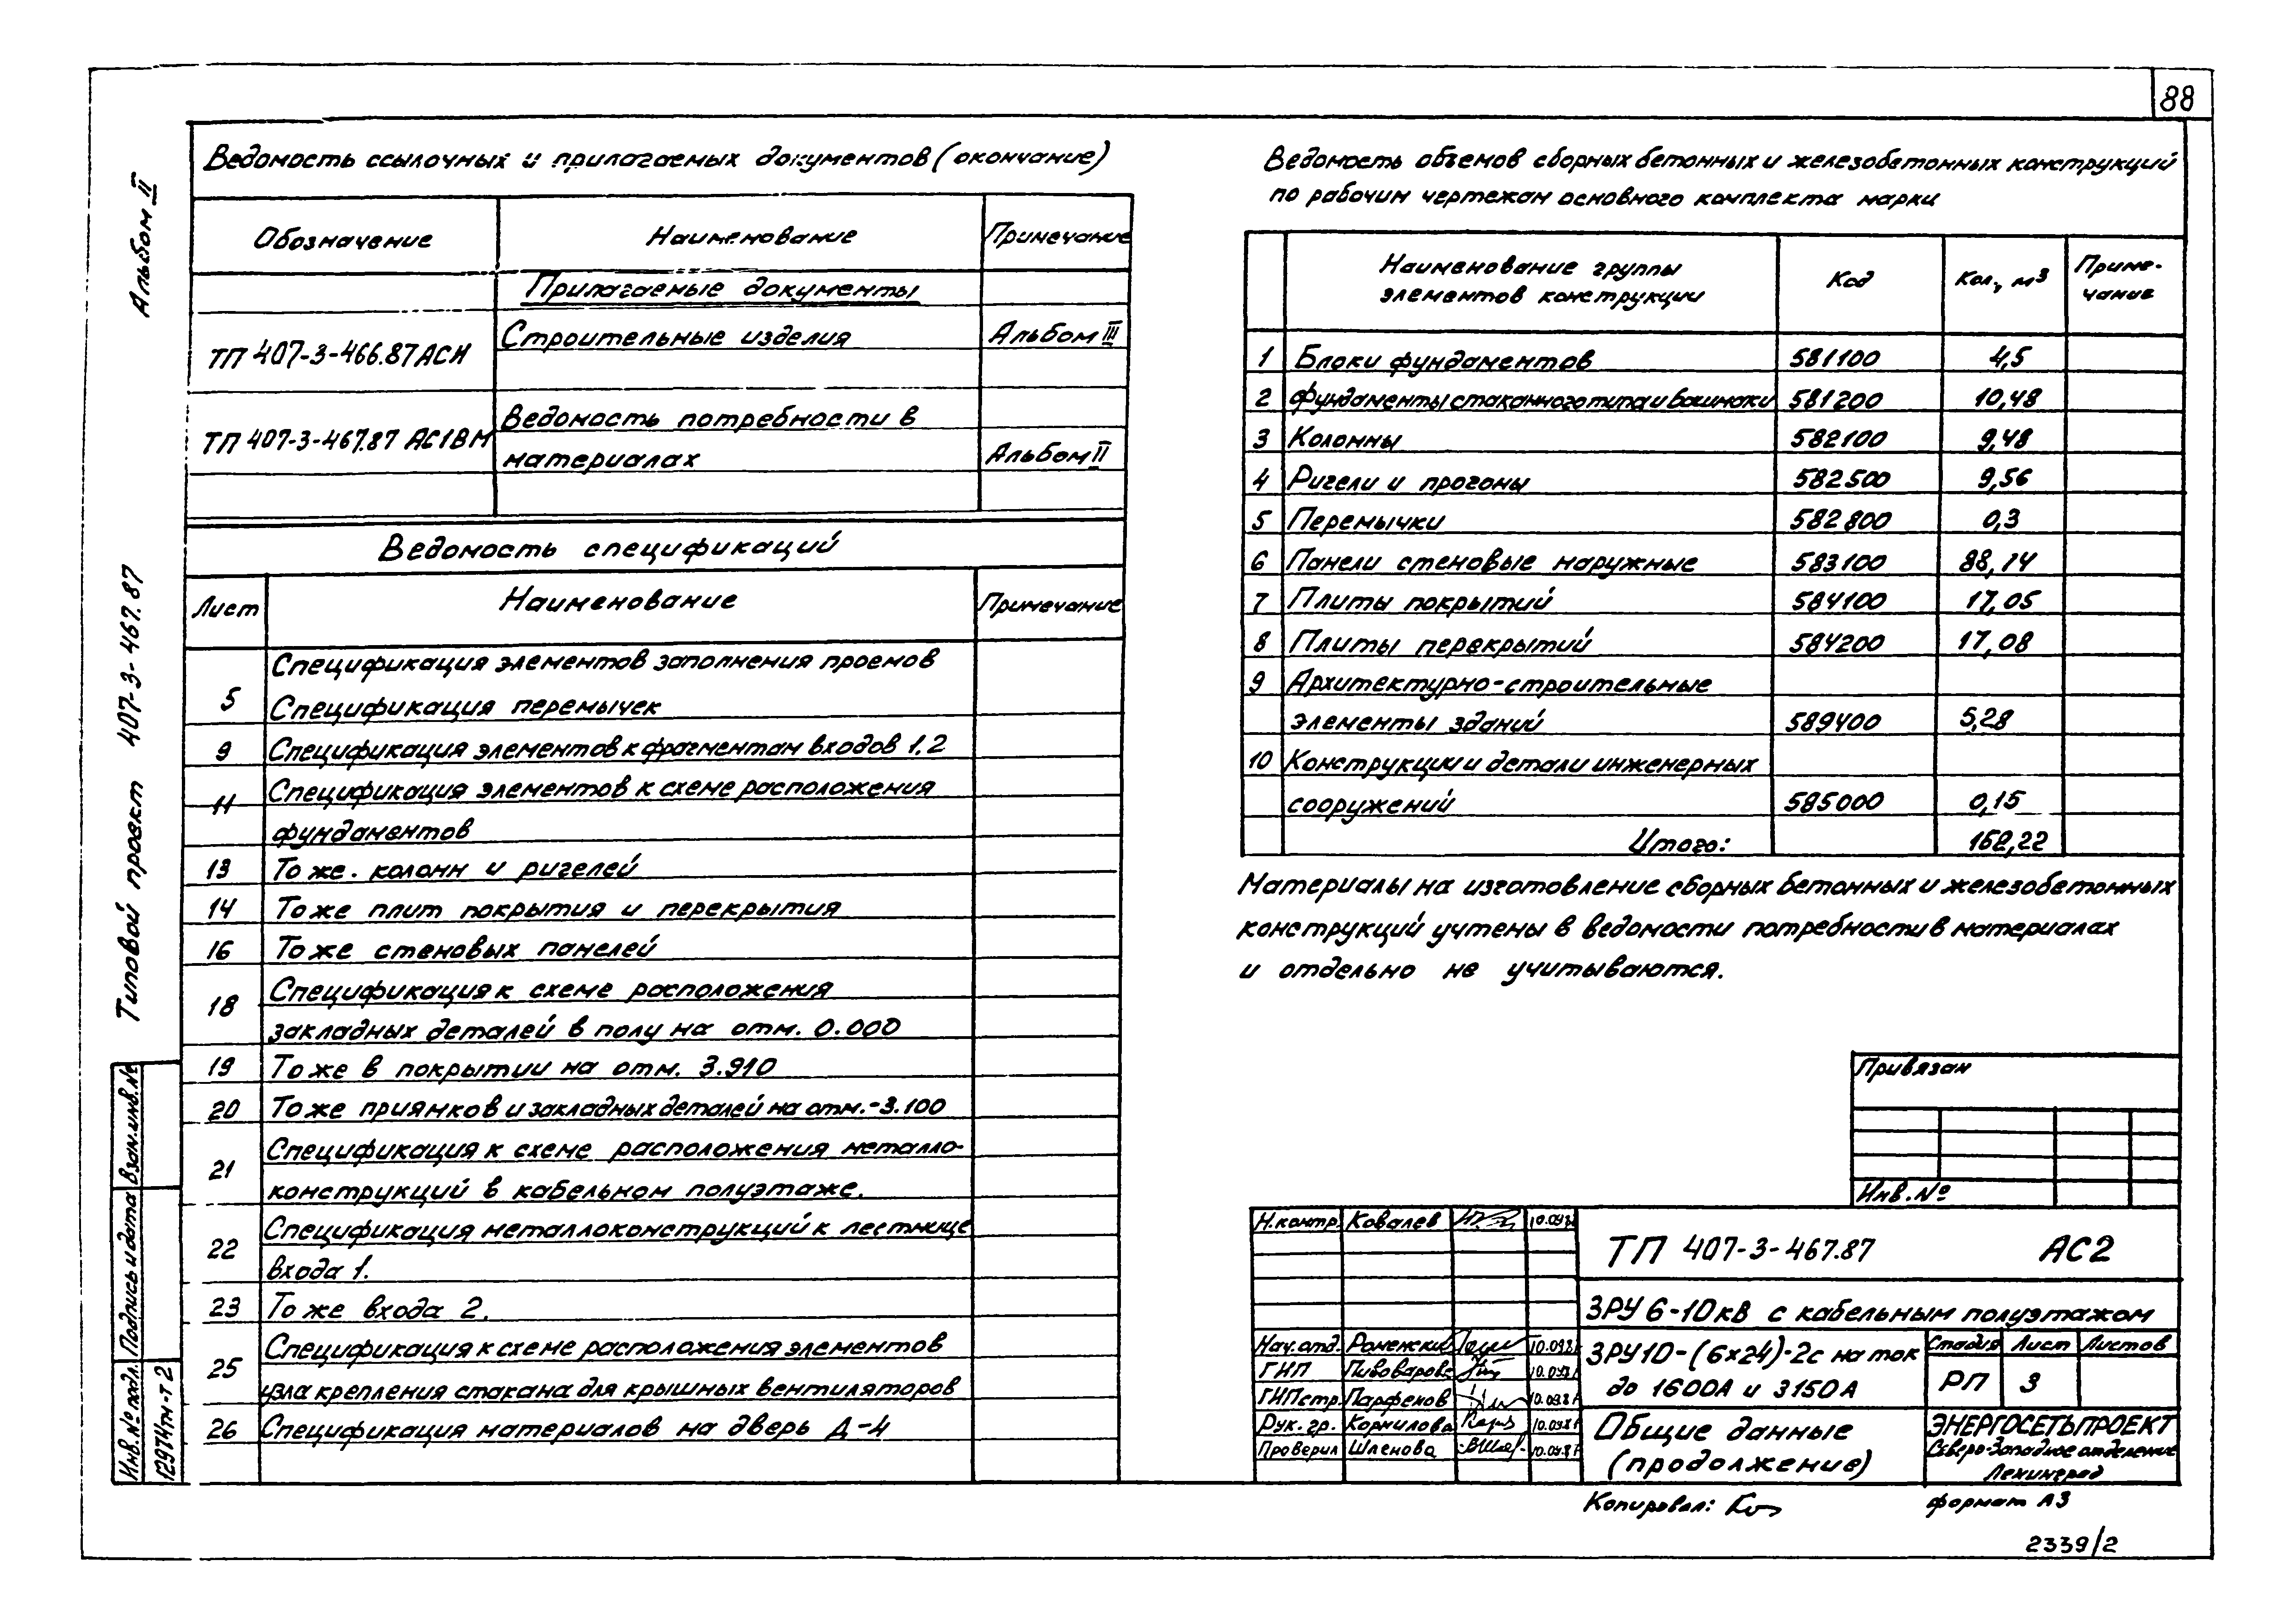 88
Альбом II
Типовой проект 407-3-467.87
Взам.инв.№
Подпись и дата
Инв.№ подл.
12974тм-т2
Ведомость ссылочных и прилагаемых документов (окончание)
Обозначение Наименование Примечание
Прилагаемые документы
ТП 407-3-466.87 АСИ Строительные изделия Альбом III
ТП 407-3-467.87 АС1ВМ Ведомость потребности в
материалах Альбом II
Ведомость спецификаций
Лист Наименование Примечание
Спецификация элементов заполнения проемов
5 Спецификация перемычек
9 Спецификация элементов к фрагментам входов 1.2
11 Спецификация элементов к схеме расположения
фундаментов
13 То же. колонн и ригелей
14 То же плит покрытия и перекрытия
16 То же стеновых панелей
18 Спецификация к схеме расположения
закладных деталей в полу на отм. 0.000
19 То же в покрытии на отм. 3.910
20 То же приямков и закладных деталей на отм.-3.100
21 Спецификация к схеме расположения металло-
конструкций в кабельном полуэтаже.
22 Спецификация металлоконструкций к лестнице
входа 1.
23 То же входа 2.
25 Спецификация к схеме расположения элементов
узла крепления стакана для крышных вентиляторов
26 Спецификация материалов на дверь Д-4
Ведомость объемов сборных бетонных и железобетонных конструкций
по рабочим чертежам основного комплекта марки
Наименование группы
элементов конструкции Код Кол., м3 Приме-
чание
1 Блоки фундаментов 581100 4,5
2 Фундаменты стаканного типа и башмаки 581200 10,48
3 Колонны 582100 9,48
4 Ригели и прогоны 582500 9,56
5 Перемычки 582800 0,3
6 Панели стеновые наружные 583100 88,14
7 Плиты покрытий 584100 17,05
8 Плиты перекрытий 584200 17,08
9 Архитектурно-строительные
элементы зданий 589400 5,28
10 Конструкции и детали инженерных
сооружений 585000 0,15
Итого: 162,22
Материалы на изготовление сборных бетонных и железобетонных
конструкций учтены в ведомости потребности в материалах
и отдельно не учитываются.
Привязан
Инв.№
Н.контр. Ковалев
ТП 407-3-467.87 АС2
ЗРУ 6-10кВ с кабельным полуэтажом
Нач.отд. Роменский
ГИП Пивоварова
ГИПстр. Парфенов
Рук. гр. Корнилова
Проверил Шленова
ЗРУ10-(6х24)-2с на ток
до 1600А и 3150А
Стадия Лист Листов
РП 3
Общие данные
(продолжение)
ЭНЕРГОСЕТЬПРОЕКТ
Северо-Западное отделение
Ленинград
Копировал:
формат А3
2339/2